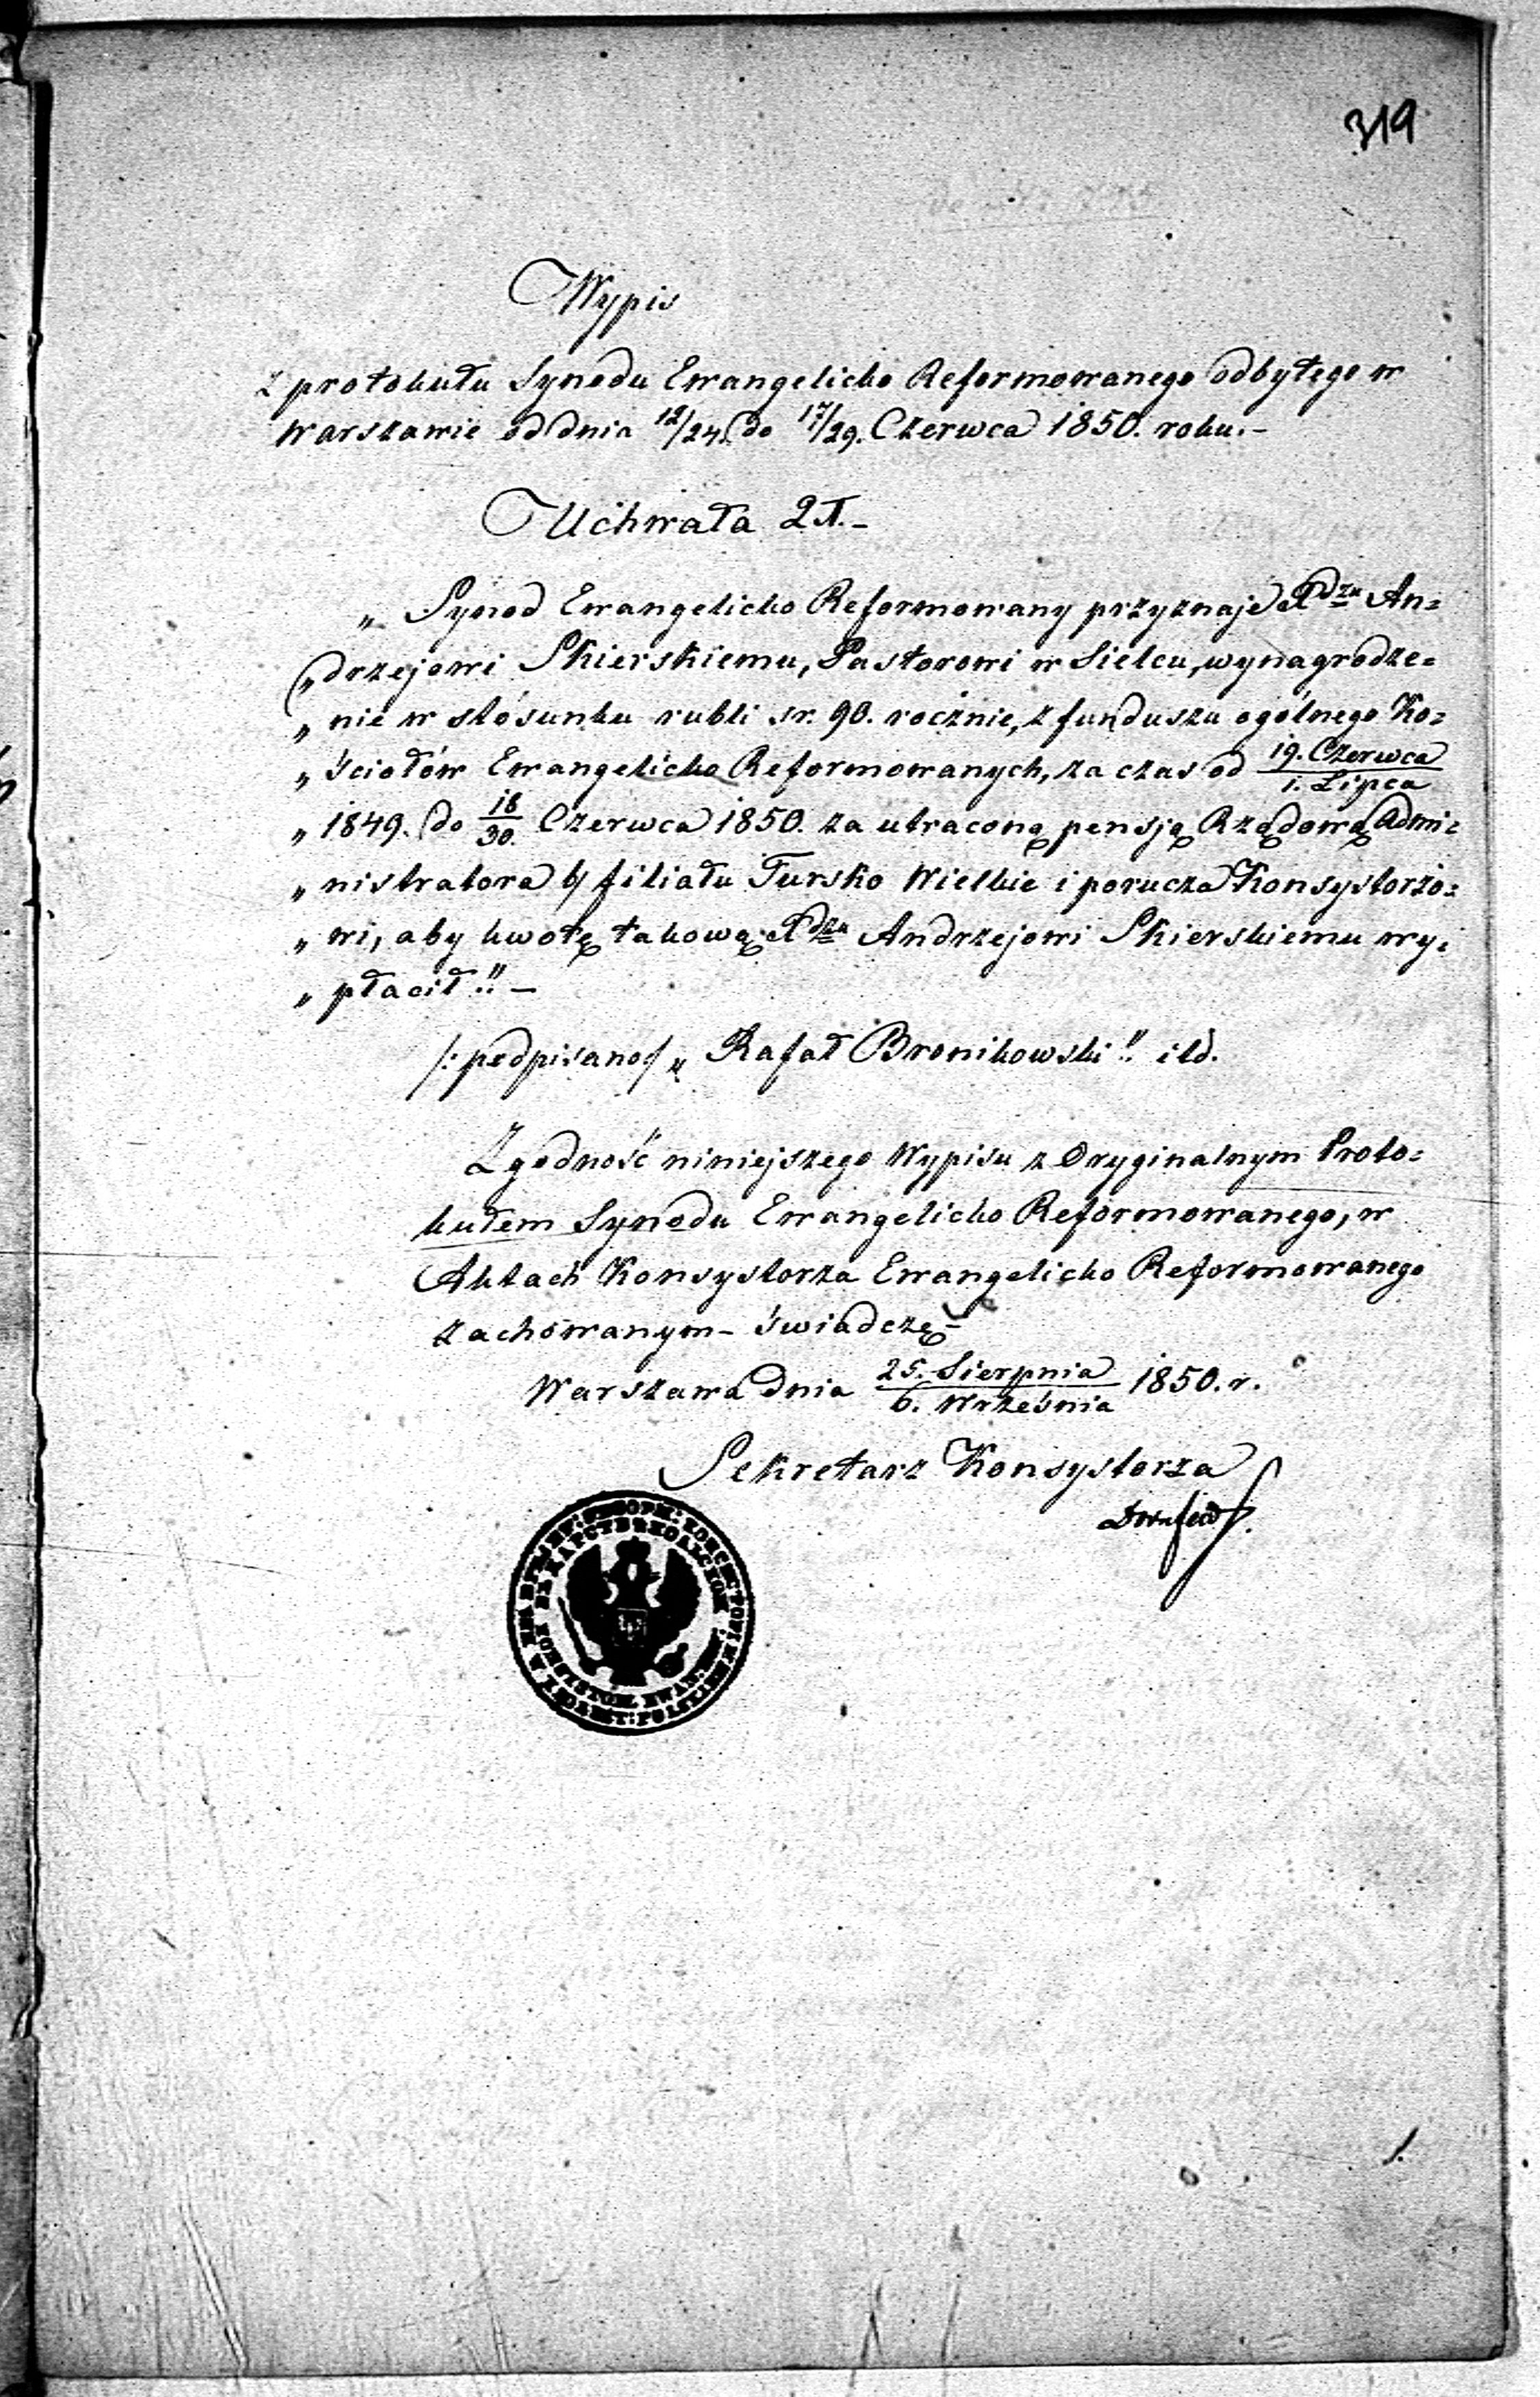 319
Wypis
z protokułu Synodu Ewangelicko Reformowanego odbytego w
Warszawie od dnia 12/24. do 17/29. Czerwca 1850. roku.-
Uchwała
„ Synod Ewangelicko Reformowany przyznaje Xdzu An=
„ drzejowi Skierskiemu, Pastorowi w Sielcu, wynagrodze=
„ nie w stósunku rubli sr. 90. rocznie, z funduszu ogólnego Ko=
„ ściołów Ewangelicko Reformowanych, za czas od 19. Czerwca / 1. Lipca
„ 1849. do 18/30. Czerwca 1850. za utraconą pensję Rządową Admi=
„ nistratora b/ filiału Tursko Wielkie i porucza Konsystorzo=
„ wi, aby kwotę takową Xdzu Andrzejowi Skierskiemu wy=
„ płacił." –
/: podpisano :/ „ Rafał Bronikowski." itd.
Zgodność niniejszego Wypisu z Oryginalnym Proto=
kułem Synodu Ewangelicko Reformowanego, w
Aktach Konsystorza Ewangelicko Reformowanego
zachowanym – świadczę –
Warszawa dnia 25. Sierpnia / 6. Września 1850. r.
Sekretarz Konsystorza